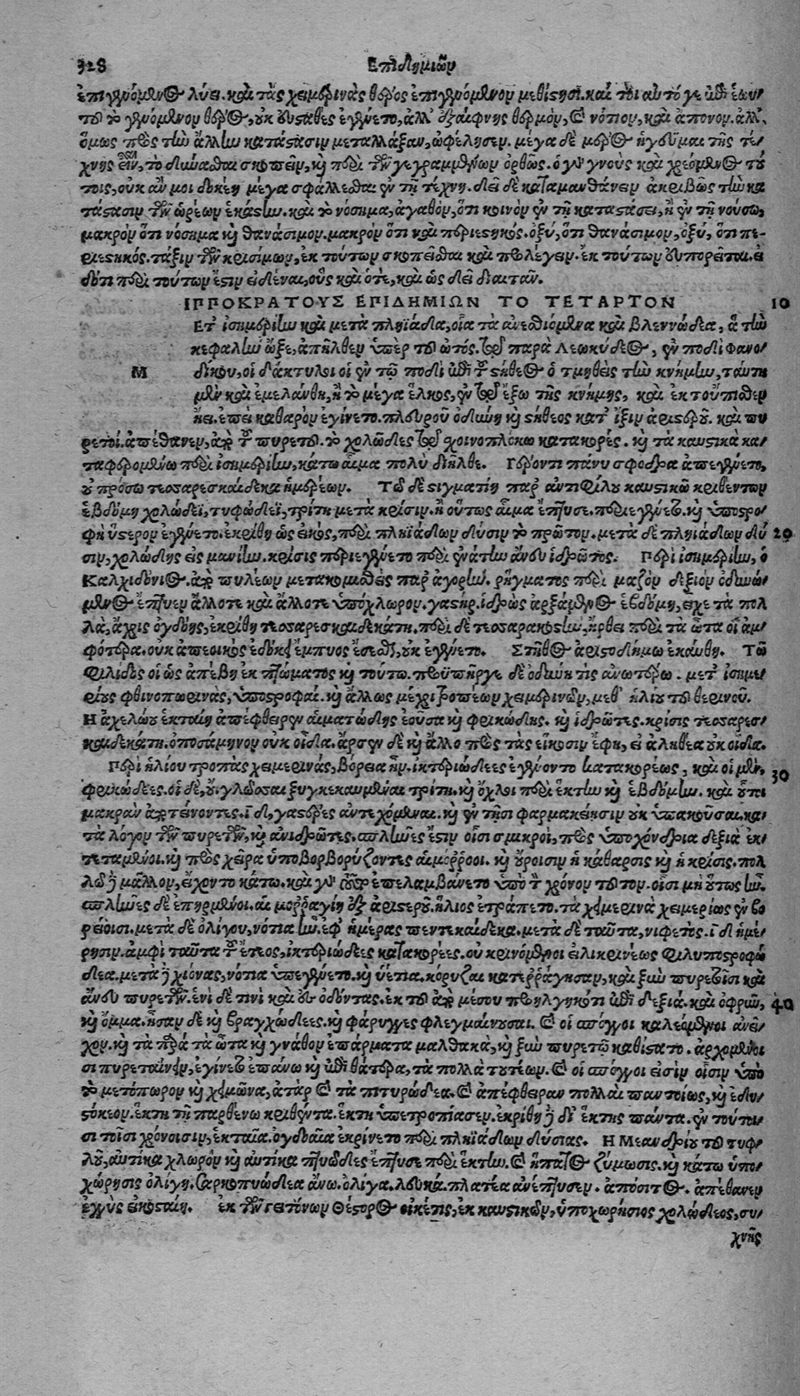 328 Ἐπιδημιῶν
ἐπιγενόμενος λύει. καὶ τὰς χειμερινὰς θέρος ἐπιγενόμενον μεθίστησι. καί τοι αὐτό γε ἐπὶ ἑωυ-
τοῦ τὸ γενόμενον θέρος, οὐκ εὐσταθὲς ἐγένετο, ἀλλ' ἐξαίφνης θερμὸν, καὶ νότιον, καὶ ἄπνοον. ἀλλ'
ὅμως πρὸς τὴν ἄλλην κατάστασιν μεταλλάξαν, ὠφέλησεν. μέγα δὲ μέρος ἡγεῦμαι τῆς τέ-
χνης εἶναι, τὸ δύνασθαι σκοπεῖν, καὶ περὶ τῶν γεγραμμένων ὀρθῶς. ὁ γὰρ γνοὺς καὶ χρεόμενος τού-
τοις, οὐκ ἄν μοι δοκέῃ μέγα σφάλλεσθαι ἐν τῇ τέχνῃ. δεῖ δὲ καταμανθάνειν ἀκριβῶς τὴν κα-
τάστασιν τῶν ὡρέων ἑκάστην. καὶ τὸ νόσημα, ἀγαθὸν, ὅτι κοινὸν ἐν τῇ καταστάσει, ἢ ἐν τῇ νούσῳ,
μακρὸν ὅτι νόσημα καὶ θανάσιμον. μακρὸν ὅτι καὶ περιεστηκός. ὀξὺ, ὅτι θανάσιμον, ὀξὺ, ὅτι πε-
ριεστηκός. τάξιν τῶν κρισίμων, ἐκ τούτων σκοπεῖσθαι καὶ προλέγειν. ἐκ τούτων εὐπορεῖται. εἰ-
δότι περὶ τούτων ἔστιν εἰδέναι, οὓς καὶ ὅτε, καὶ ὡς δεῖ διαιτᾶν.
ΙΠΠΟΚΡΑΤΟΥΣ ΕΠΙΔΗΜΙΩΝ ΤΟ ΤΕΤΑΡΤΟΝ 10
Μετ' ἰσημερίην καὶ μετὰ πληϊάδα, οἷα τὰ ἀνεσθιόμενα καὶ βλεννώδεα, ἃ τὴν
κεφαλὴν ὦξε, ἀπῆλθεν ὑπὲρ τοῦ ὠτός. τῷ παρὰ Λεωκύδεος, ἐν ποδὶ Φανο-
δίκου, οἱ δάκτυλοι οἱ ἐν τῷ ποδὶ ἐπὶ τοῦ στήθεος ὁ τμηθεὶς τὴν κνήμην, ταύτῃ
μὲν καὶ ἐμελάνθη, ᾗ τὸ μέγα ἕλκος, ἐν τῷ ἔξω τῆς κνήμης, καὶ ἐκ τοὔπισθεν
ἦει. ἐπεὶ καθαρὸν ἐγίνετο. πλευροῦ ὀδύνη καὶ στήθεος κατ' ἴξιν ἀριστεροῦ. καὶ πυ-
ρετοί. ἀπέθανεν, ἀπὸ τοῦ πυρετοῦ. τὸ χολῶδες τῷ σχοινοπλόκῳ κατακορές. καὶ τὰ καυστικὰ κα-
ταφερομένῳ περὶ ἰσημερίην, κάτω αἷμα πολὺ διῆλθε. Γέροντι πάνυ σφόδρα ἀπεγένετο,
οὐ πρόσω τεσσαρεσκαίδεκα ἡμέρεων. Τῷ δὲ στιγματίῃ παρ' ἀντιφίλου καυστικῷ κριθέντων
ἑβδόμῃ χολώδεϊ, τυφώδεϊ, τρίτῃ μετὰ κρίσιν. ἢ οὕτως αἷμα ἔπτυσε. περιεγένετο. καὶ ὑποστρο-
φὴ ὕστερον ἐγένετο. ἐκρίθη ὡς εἰκὸς, περὶ πληϊάδων δύσιν τὸ πρῶτον. μετὰ δὲ πληιάδων δύ- 20
σιν, χολώδης ἐς μανίην. κρίσις περιεγένετο περὶ ἐνάτην ἄνευ ἱδρῶτος. Περὶ ἰσημερίην, ὁ
Καλχιδόνιος ἀπὸ πυλέων μετακομισθεὶς παρ' ἀγορήν. ῥήγματος περὶ μαζὸν δεξιὸν ὀδυνώ-
μενος ἔπτυεν ἄλλοτε καὶ ἄλλοτε ὑπόχλωρον. γαστὴρ. ἱδρὼς ἀρξάμενος ἑβδόμῃ, εἶχε τὰ πολ-
λὰ, ἄχρις ὀγδόης, ἐκρίθη τεσσαρεσκαιδεκάτῃ. περὶ δὲ τεσσαρακοστὴν, ἤρθει περὶ τὰ ὦτα οἱ ἀμ-
φότερα. οὐκ ἀπεοικὸς ἐδόκει ἔμπυος ἔσεσθαι, οὐκ ἐγένετο. Στῆθος ἀριστοδήμῳ ἐκαύθη. Τῷ
Φίλιδος οἱ ὡς ἀπέβη ἐκ πτώματος καὶ τούτῳ. προϋπῆρχε δὲ ὀδύνη τὶς ἀνωτέρω. μετ' ἰσημε-
ρίης φθινοπωρινὰς, ὑποστροφαί. καὶ ἄλλως μέχρι τροπέων χειμερινῶν, μεθ' ἡλίου τοῦ θερινοῦ.
Ἡ ἀχελώου ἑκταίη ἀπέφθειρεν αἱματώδης ἐοῦσα καὶ φρικώδης. καὶ ἱδρῶτες. κρίσις τεσσαρεσ-
καιδεκάτῃ. ὁποσάμηνον οὐκ οἶδα. ἄρσεν δὲ καὶ ἄλλο πρὸς τὰς εἴκοσιν ἔφη, εἰ ἀληθέα οὐκ οἶδα.
Περὶ ἡλίου τροπὰς χειμερινὰς, βόρεια ἦν. ἰκτεριώδεες ἐγένοντο κατακορέως, καὶ οἱ μὲν, 30
φρικώδεες. οἱ δὲ, οὔ. γλῶσσαι ξυγκεκαυμέναι τρίτῃ. καὶ ὄχλοι περὶ ἕκτην καὶ ἑβδόμην. καὶ ἐπὶ
μακρὰν ἀποτείνοντες. ιδ, γαστέρες ἀντεχόμεναι. καὶ ἐν τῇσι φαρμακείῃσιν οὐχ ὑπακοῦσαι. κα-
τὰ λόγον τῶν πυρετῶν, καὶ ἀνιδρῶτες. σπλῆνες ἔστιν οἷσι σμικροὶ, πρὸς ὑποχόνδρια δεξιὰ ἐκ-
τεταμένοι. καὶ πρὸς χεῖρα ὑποβορβορύζοντες αἱμόρροοι. καὶ οὔροισιν ἡ κάθαρσις καὶ ἡ κρίσις. πολ-
λῷ δὲ μᾶλλον, εἴχοντο κάτω. καὶ γὰρ ἐπελαμβάνετο ὑπὸ τὸν χρόνον τοῦτον. οἷσι μὴ οὕτως ἦν.
σπλῆνες δὲ ἐπηρμένοι. αἱμορραγίη ἐξ ἀριστεροῦ. ἥλιος ἐτράπετο. τὰ χειμερινὰ χειμερίως ἐν βο-
ρείοισι. μετὰ δὲ ὀλίγον, νότια ἦν. ἐφ' ἡμέρας πεντεκαίδεκα. μετὰ δὲ ταῦτα, νιφετός. ιδ ἡμέ-
ρῃσιν. ἀμφὶ ταῦτα τοῦ ἔτεος, ἰκτεριώδεες κατακορέες. οὐ κρινόμενοι εἰλικρινέως φιλυποστροφώ-
δεα. μετὰ δὲ χιόνας, νότια ὑπεγένετο. καὶ ὑέτια. κόρυζαι κατερράγησαν, καὶ ξὺν πυρετοῖσι καὶ
ἄνευ πυρετῶν. ἑνὶ δέ τινι καὶ ἐς ὀδόντας. ἐκ τοῦ ἀπὸ μέσου προηλγηκότι ἐπὶ δεξιά. καὶ ὀφρῦν, 40
καὶ ὄμμα. ἦσαν δὲ καὶ βραγχώδεες. καὶ φάρυγγες φλεγμαίνουσαι. καὶ οἱ σπόγγοι καλεόμενοι ἀνεῖ-
χον. καὶ τὰ παρὰ τὰ ὦτα καὶ γνάθον ἐπάρματα μαλθακὰ, καὶ ξὺν πυρετῷ καθίστατο. ἀρχομένοι-
σι πυρεταίνειν, ἐγίνετο ἐπάνω καὶ ἐπὶ θάτερα, τὰ πολλὰ τουτέων. καὶ οἱ σπόγγοι εἰσὶν οἷσιν ὑπὸ
τὸ μετόπωρον καὶ χειμῶνα, ἀτὰρ καὶ τὰ πιτυρώδεα. καὶ ἀπέφθειραν πολλαὶ παντοίως, καὶ ἐδυ-
στόκεον. ἕκτῃ τῇ παρθένῳ κριθέντα. ἕκτῃ ὑπετροπίασεν. ἐκρίθη δὲ δι' ἕκτης πάντα. ἐν τούτοι-
σι τοῖσι χρόνοισιν, ἑκταῖα. ὀγδοαῖα ἐκρίνετο περὶ πληϊάδων δύσιας. Ἡ Μεανδρίου τοῦ τυφ-
λοῦ, αὐτίκα χλωρὸν καὶ αὐτίκα πυῶδες ἔπτυσε περὶ ἕκτην. καὶ ἥπατος ζύμωσις. καὶ κάτω ὑπο-
χώρησις ὀλίγη. σαρκοπυώδεα ἄνω. ὀλίγα. λευκά. πλατέα ἀνέπτυσεν. ἀπόσιτος. ἀπέθανεν
ἐγγὺς εἰκοστῆς. ἐκ τῶν γειτόνων Θέστορος οἰκέτις, ἐκ καυστικῶν, ὑποχωρήσιος χολώδεος, συ-
χνῆς